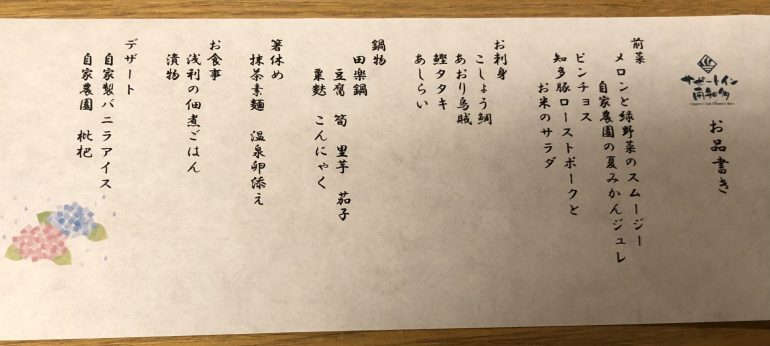 サザートイン
南知多
お品書き
前菜
メロンと緑野菜のスムージー
自家農園の夏みかんジュレ
ピンチョス
知多豚ローストポークと
お米のサラダ
お刺身
こしょう鯛
あおり烏賊
鰹タタキ
あしらい
鍋物
田楽鍋
豆腐 筍 里芋 茄子
粟麩 こんにゃく
箸休め
抹茶素麺 温泉卵添え
お食事
浅利の佃煮ごはん
漬物
デザート
自家製バニラアイス
自家農園 枇杷